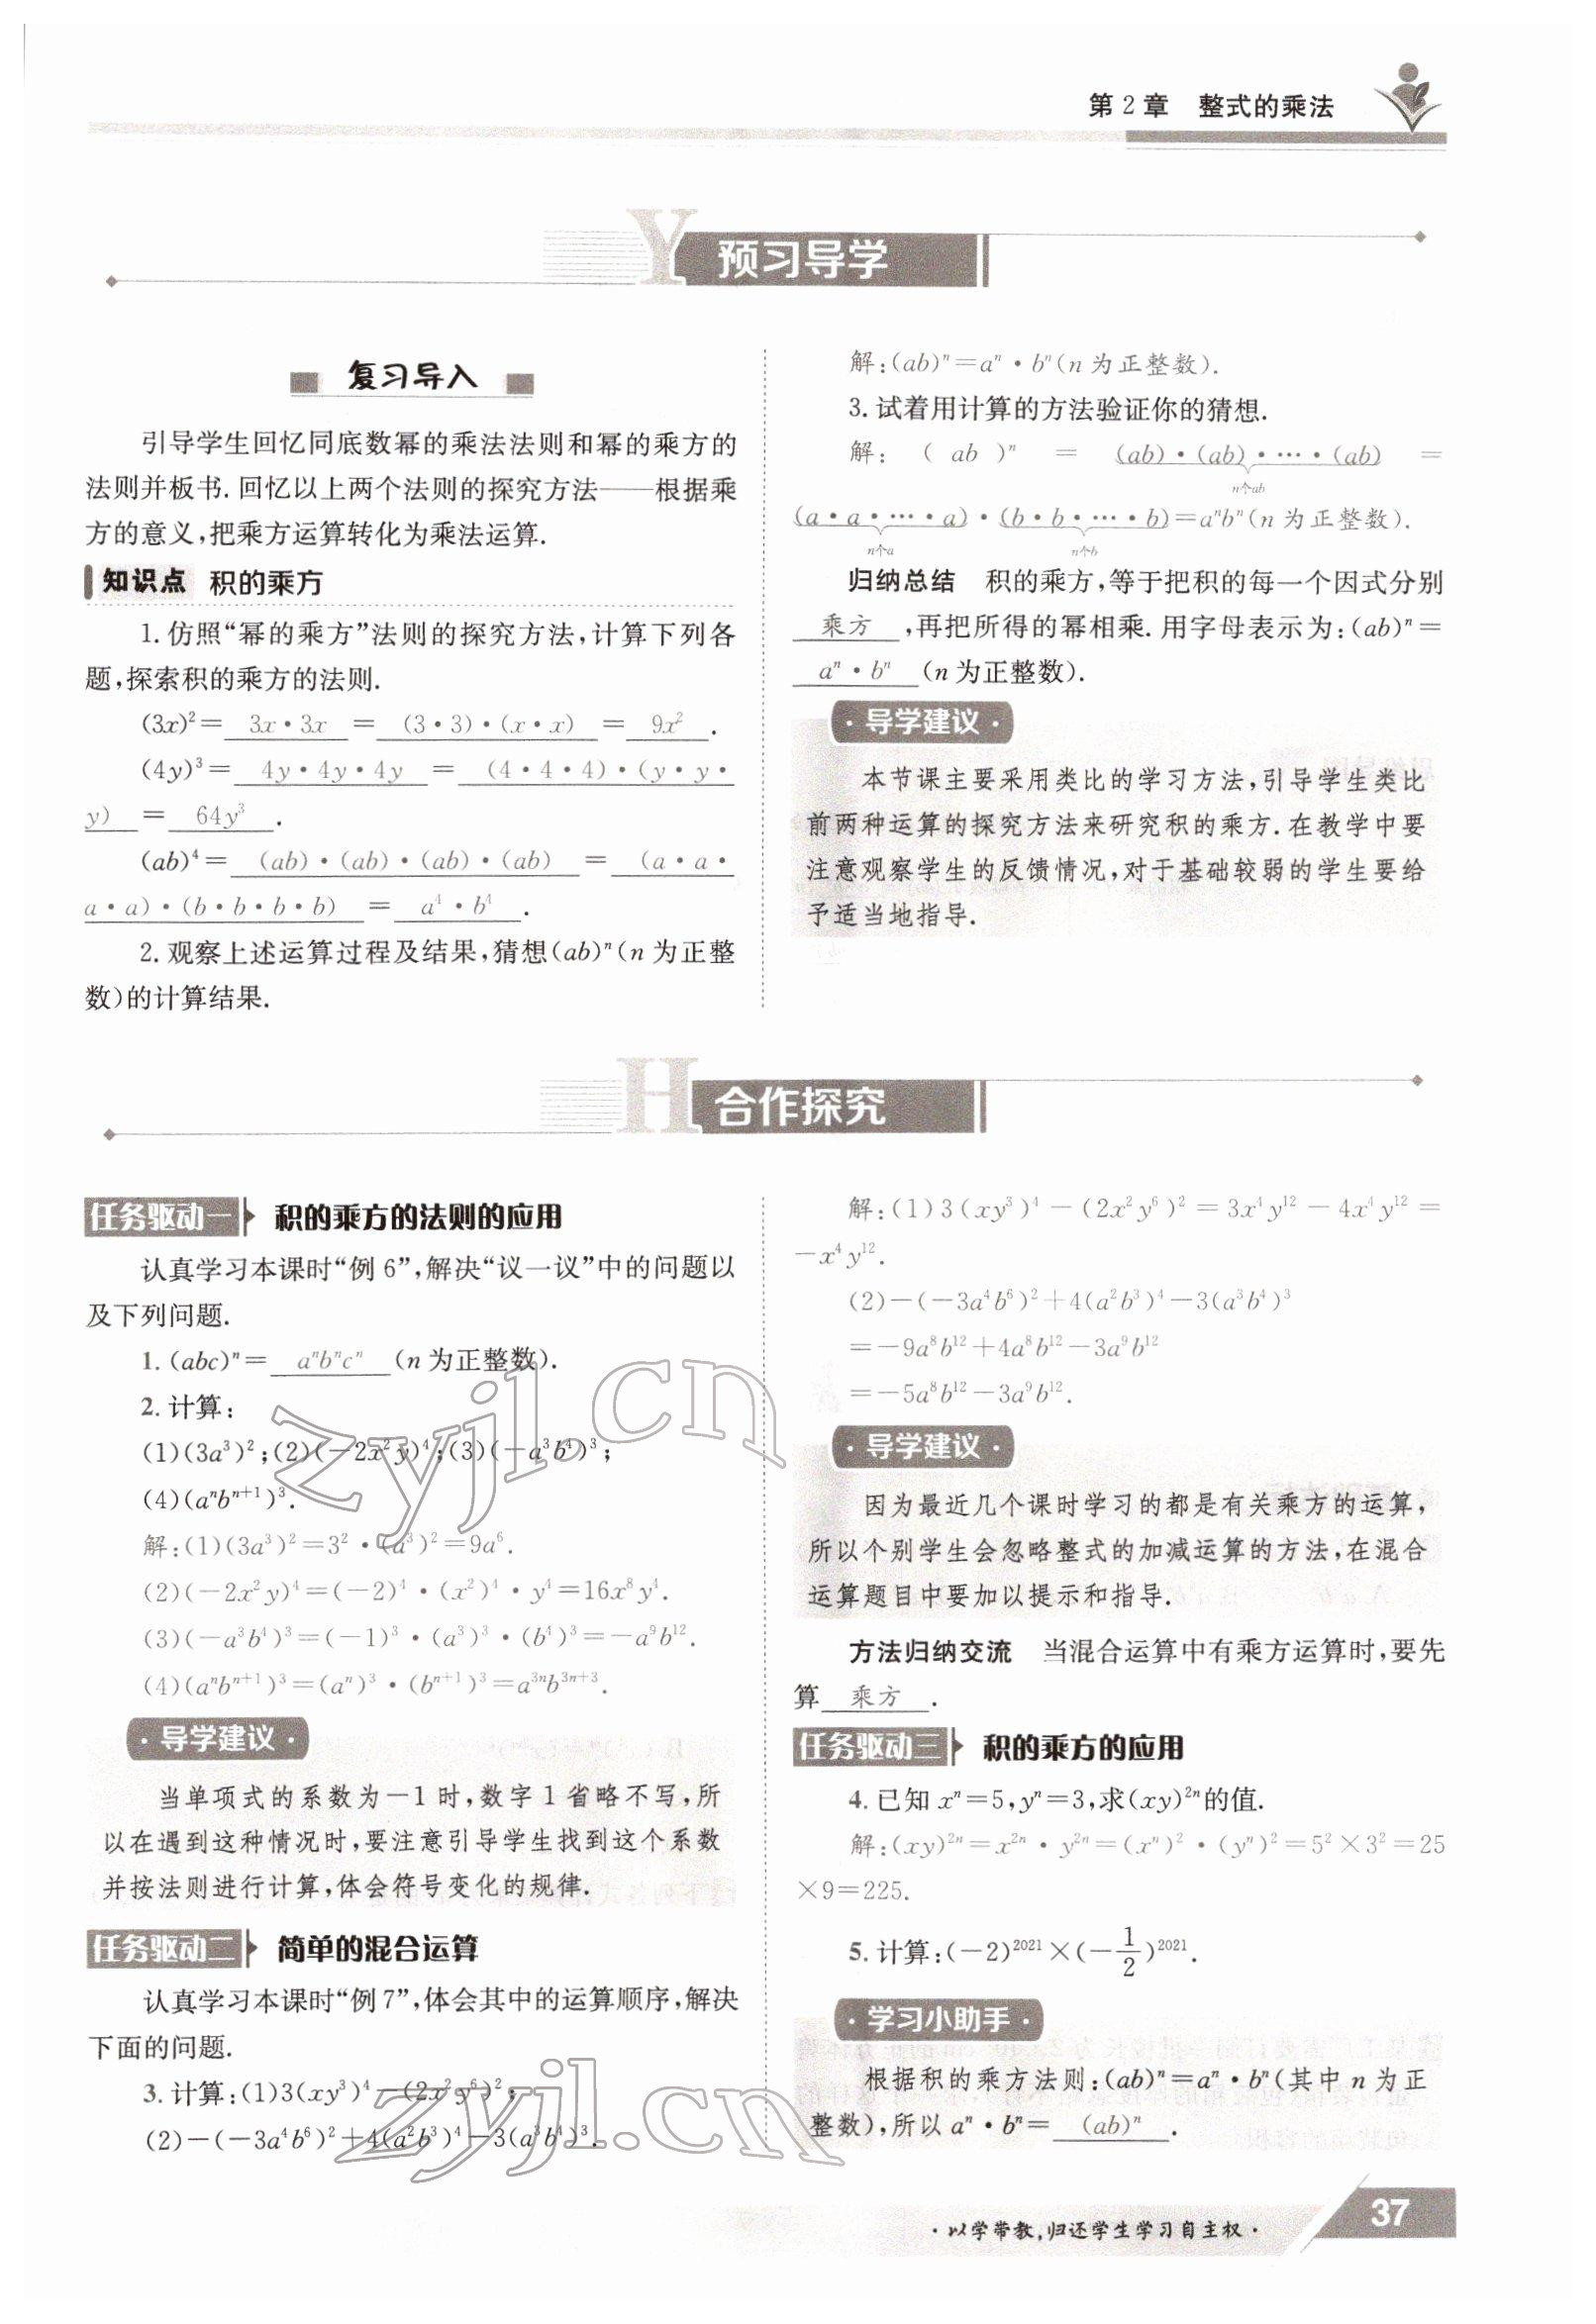 第 2 章　整式的乘法
Y 预习导学
复习导入
引导学生回忆同底数幂的乘法法则和幂的乘方的
法则并板书.回忆以上两个法则的探究方法——根据乘
方的意义,把乘方运算转化为乘法运算.
知识点　积的乘方
1.仿照“幂的乘方”法则的探究方法,计算下列各
题,探索积的乘方的法则.
(3x)²= 3x·3x = (3·3)·(x·x) = 9x² .
(4y)³= 4y·4y·4y = (4·4·4)·(y·y·
y) = 64y³ .
(ab)⁴= (ab)·(ab)·(ab)·(ab) = (a·a·
a·a)·(b·b·b·b) = a⁴·b⁴ .
2.观察上述运算过程及结果,猜想(ab)ⁿ(n 为正整
数)的计算结果.
解:(ab)ⁿ=aⁿ·bⁿ(n 为正整数).
3.试着用计算的方法验证你的猜想.
解:(ab)ⁿ = (ab)·(ab)·…·(ab) =
n个ab
(a·a·…·a)·(b·b·…·b)=aⁿbⁿ(n 为正整数).
n个a　n个b
归纳总结　积的乘方,等于把积的每一个因式分别
乘方 ,再把所得的幂相乘.用字母表示为:(ab)ⁿ=
aⁿ·bⁿ (n 为正整数).
·导学建议·
本节课主要采用类比的学习方法,引导学生类比
前两种运算的探究方法来研究积的乘方.在教学中要
注意观察学生的反馈情况,对于基础较弱的学生要给
予适当地指导.
H 合作探究
任务驱动一　积的乘方的法则的应用
认真学习本课时“例 6”,解决“议一议”中的问题以
及下列问题.
1.(abc)ⁿ= aⁿbⁿcⁿ (n 为正整数).
2.计算:
(1)(3a³)²;(2)(-2x²y)⁴;(3)(-a³b⁴)³;
(4)(aⁿbⁿ⁺¹)³.
解:(1)(3a³)²=3²·(a³)²=9a⁶.
(2)(-2x²y)⁴=(-2)⁴·(x²)⁴·y⁴=16x⁸y⁴.
(3)(-a³b⁴)³=(-1)³·(a³)³·(b⁴)³=-a⁹b¹².
(4)(aⁿbⁿ⁺¹)³=(aⁿ)³·(bⁿ⁺¹)³=a³ⁿb³ⁿ⁺³.
·导学建议·
当单项式的系数为-1时,数字1省略不写,所
以在遇到这种情况时,要注意引导学生找到这个系数
并按法则进行计算,体会符号变化的规律.
任务驱动二　简单的混合运算
认真学习本课时“例 7”,体会其中的运算顺序,解决
下面的问题.
3.计算:(1)3(xy³)⁴-(2x²y⁶)²;
(2)-(-3a⁴b⁶)²+4(a²b³)⁴-3(a³b⁴)³.
解:(1)3(xy³)⁴-(2x²y⁶)²=3x⁴y¹²-4x⁴y¹²=
-x⁴y¹².
(2)-(-3a⁴b⁶)²+4(a²b³)⁴-3(a³b⁴)³
=-9a⁸b¹²+4a⁸b¹²-3a⁹b¹²
=-5a⁸b¹²-3a⁹b¹².
·导学建议·
因为最近几个课时学习的都是有关乘方的运算,
所以个别学生会忽略整式的加减运算的方法,在混合
运算题目中要加以提示和指导.
方法归纳交流　当混合运算中有乘方运算时,要先
算 乘方 .
任务驱动三　积的乘方的应用
4.已知 xⁿ=5,yⁿ=3,求(xy)²ⁿ的值.
解:(xy)²ⁿ=x²ⁿ·y²ⁿ=(xⁿ)²·(yⁿ)²=5²×3²=25
×9=225.
5.计算:(-2)²⁰²¹×(-1/2)²⁰²¹.
·学习小助手·
根据积的乘方法则:(ab)ⁿ=aⁿ·bⁿ(其中 n 为正
整数),所以 aⁿ·bⁿ= (ab)ⁿ .
·以学带教,归还学生学习自主权·
37
zyjl.cn
zyjl.cn